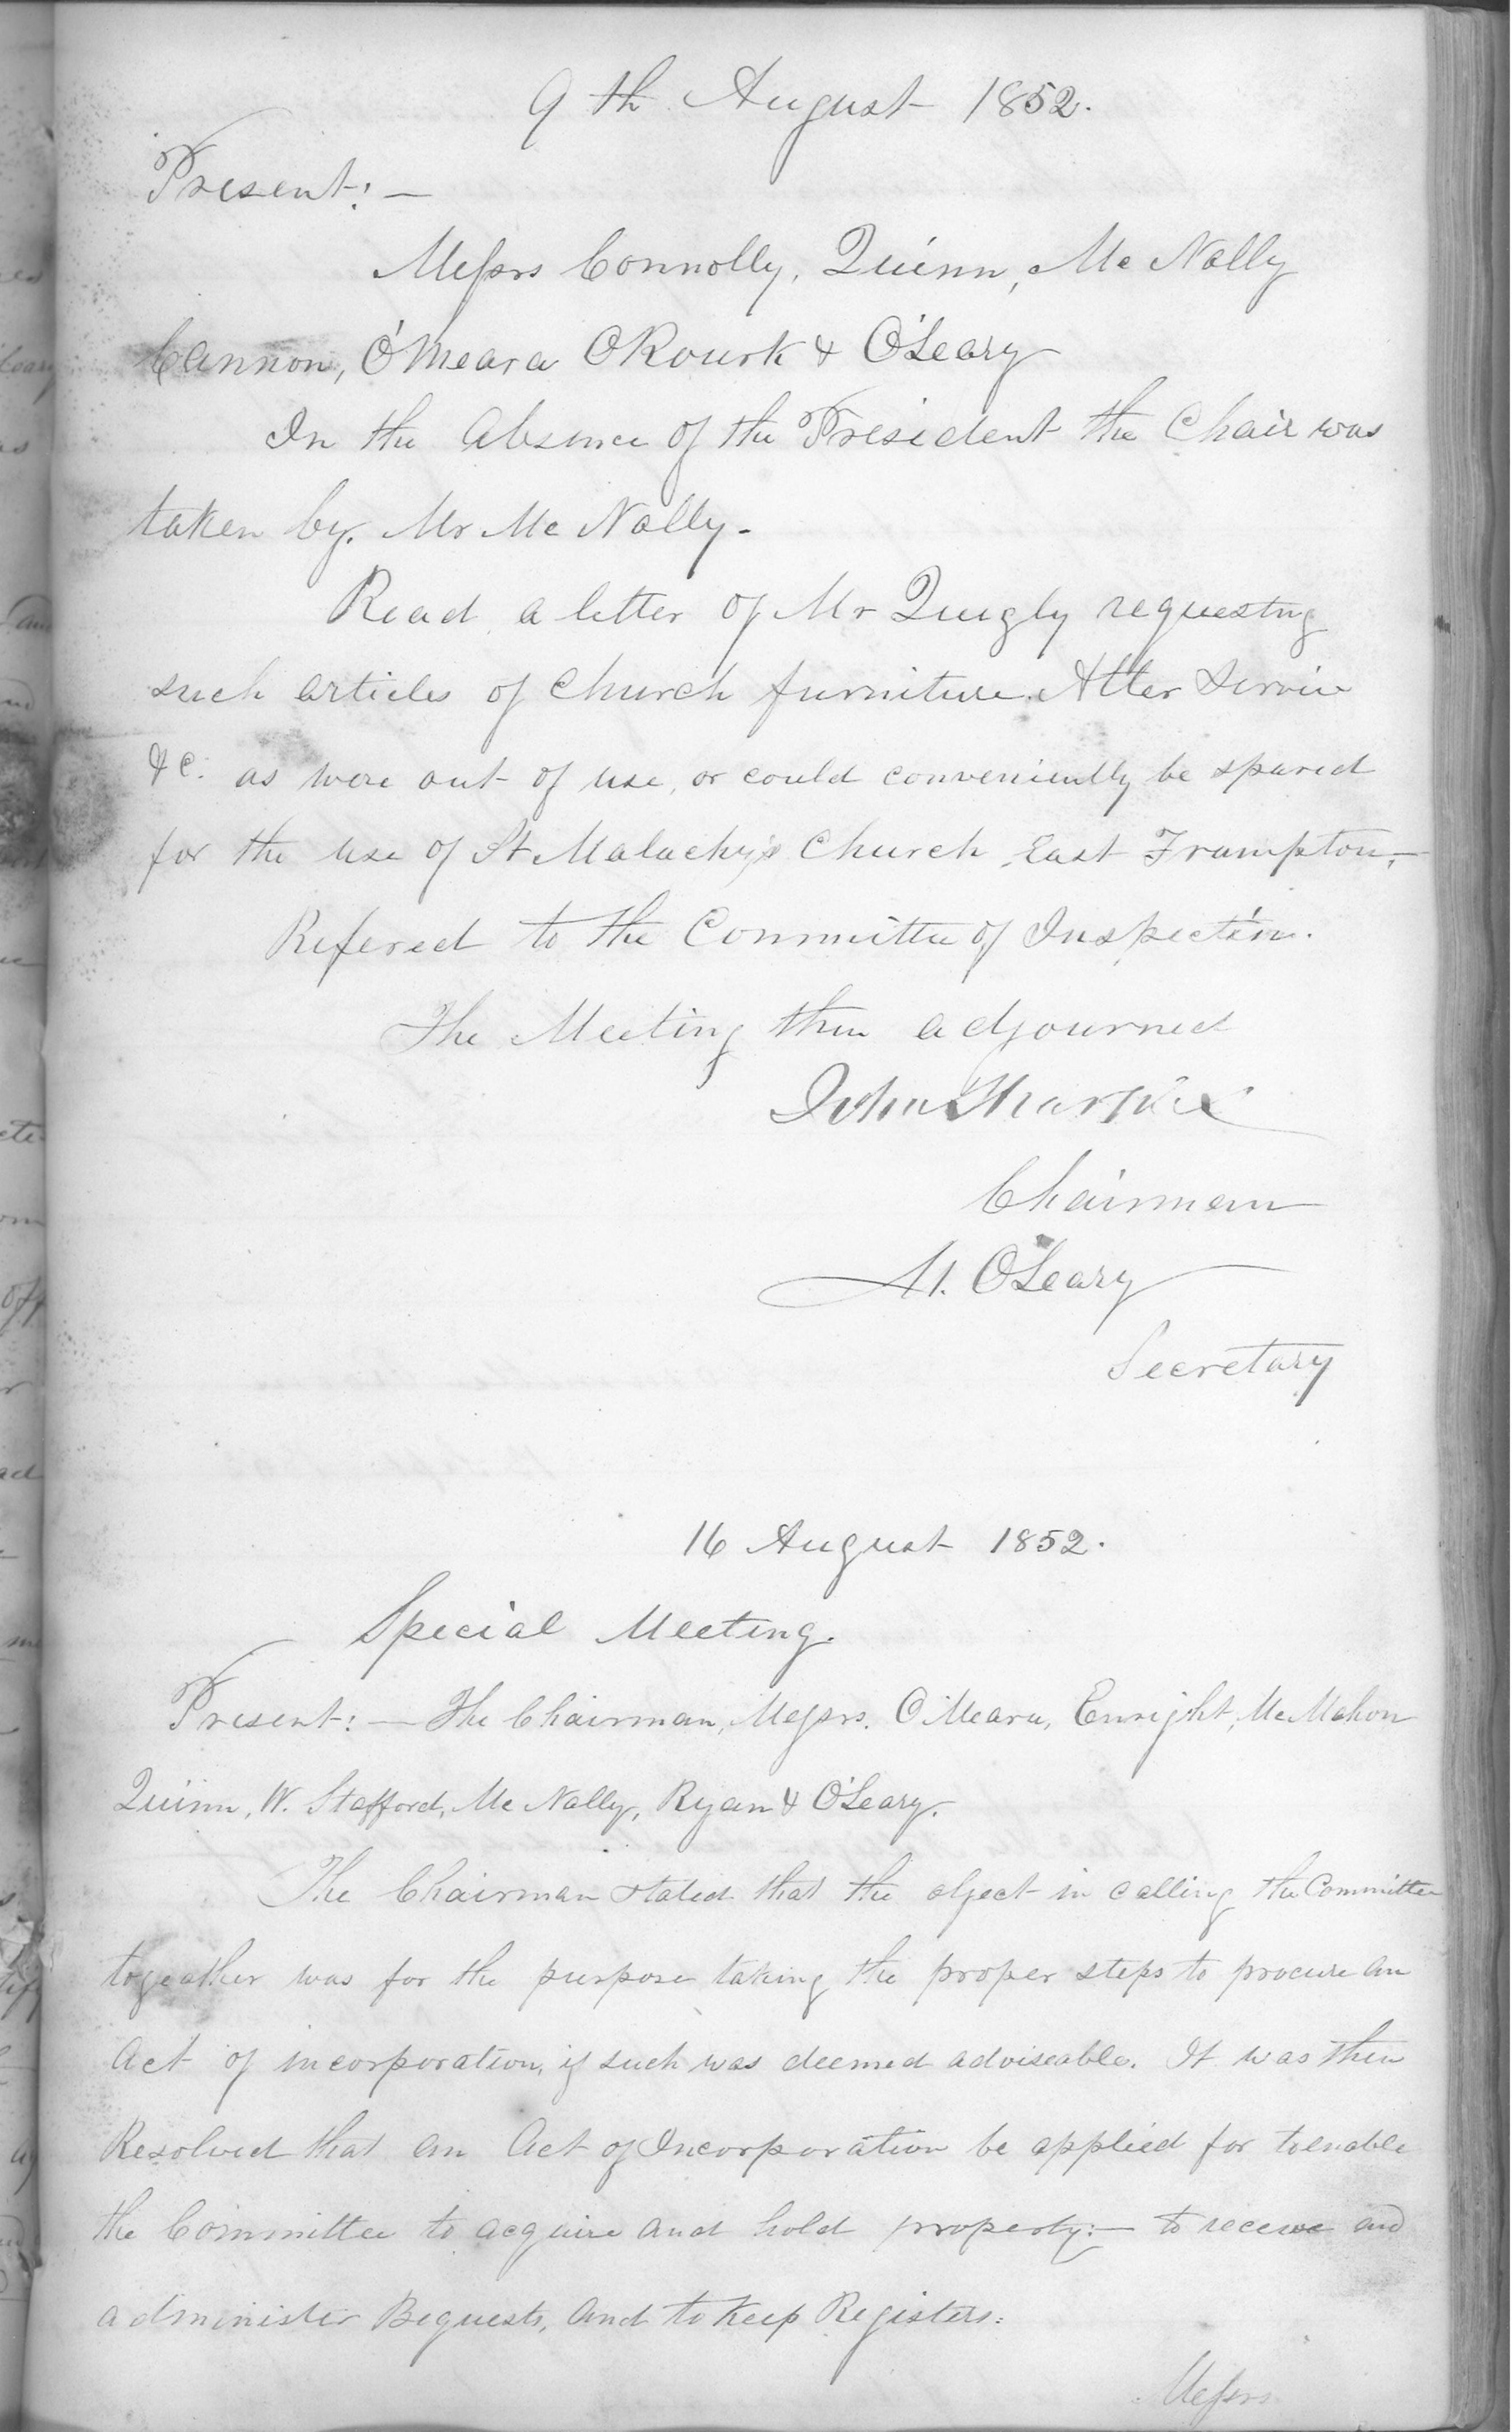 9th August 1852.
Present: —
Messrs Connolly, Quinn, Mc Nally
Cannon, O'Meara O'Rourk & O'Leary
In the Absence of the President the Chair was
taken by. Mr Mc Nally.
Read a letter of Mr Quigly requestng
such articles of Church furniture Alter Service
&c. as were out of use, or could conveniently be spared
for the use of St Malachy's Church East Frampton, —
Refered to the Committee of Inspection.
The Meeting then adjourned
John
Chairman
M. O'Leary
Secretary
16 August 1852.
Special Meeting.
Present: — The Chairman, Messrs. O'Meara, Enright, McMahon
Quinn, W. Stafford, Mc Nally, Ryan & O'Leary.
The Chairman stated that the object in calling the Committee
togeather was for the purpose taking the proper steps to procure an
Act of incorporation, if such was deemed adviseable. It was then
Resolved that an Act of Incorporation be applied for to enable
the Committee to acquire and hold property: — to receive and
administer Bequests, and to keep Registers.
Messrs